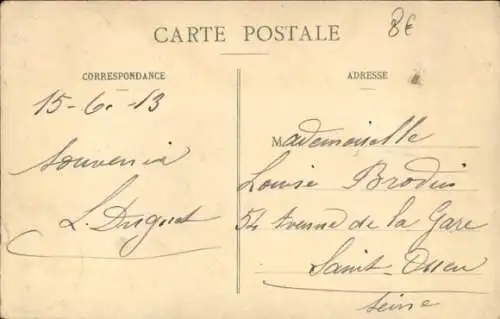 CARTE POSTALE
8€
CORRESPONDANCE
ADRESSE
15-6-13
Souvenir
L. Duguet
Mademoiselle
Louise Brodin
54 Avenue de la Gare
Saint-Ouen
Seine